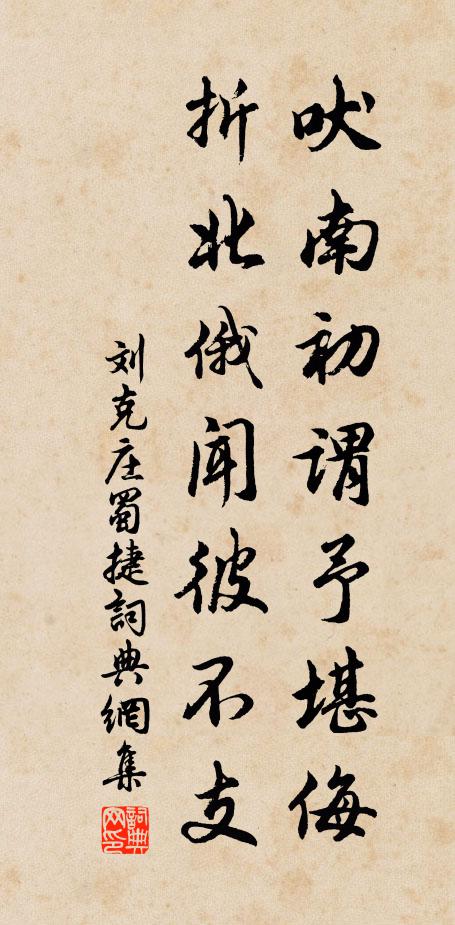 吠南初谓予堪侮
折北俄闻彼不支
刘克庄蜀捷詞典網集
詞典网印